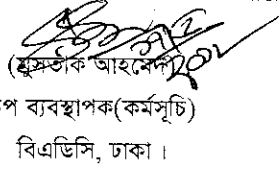 (মুসতাক আহমেদ)
উপ ব্যবস্থাপক(কর্মসূচি)
বিএডিসি, ঢাকা ।